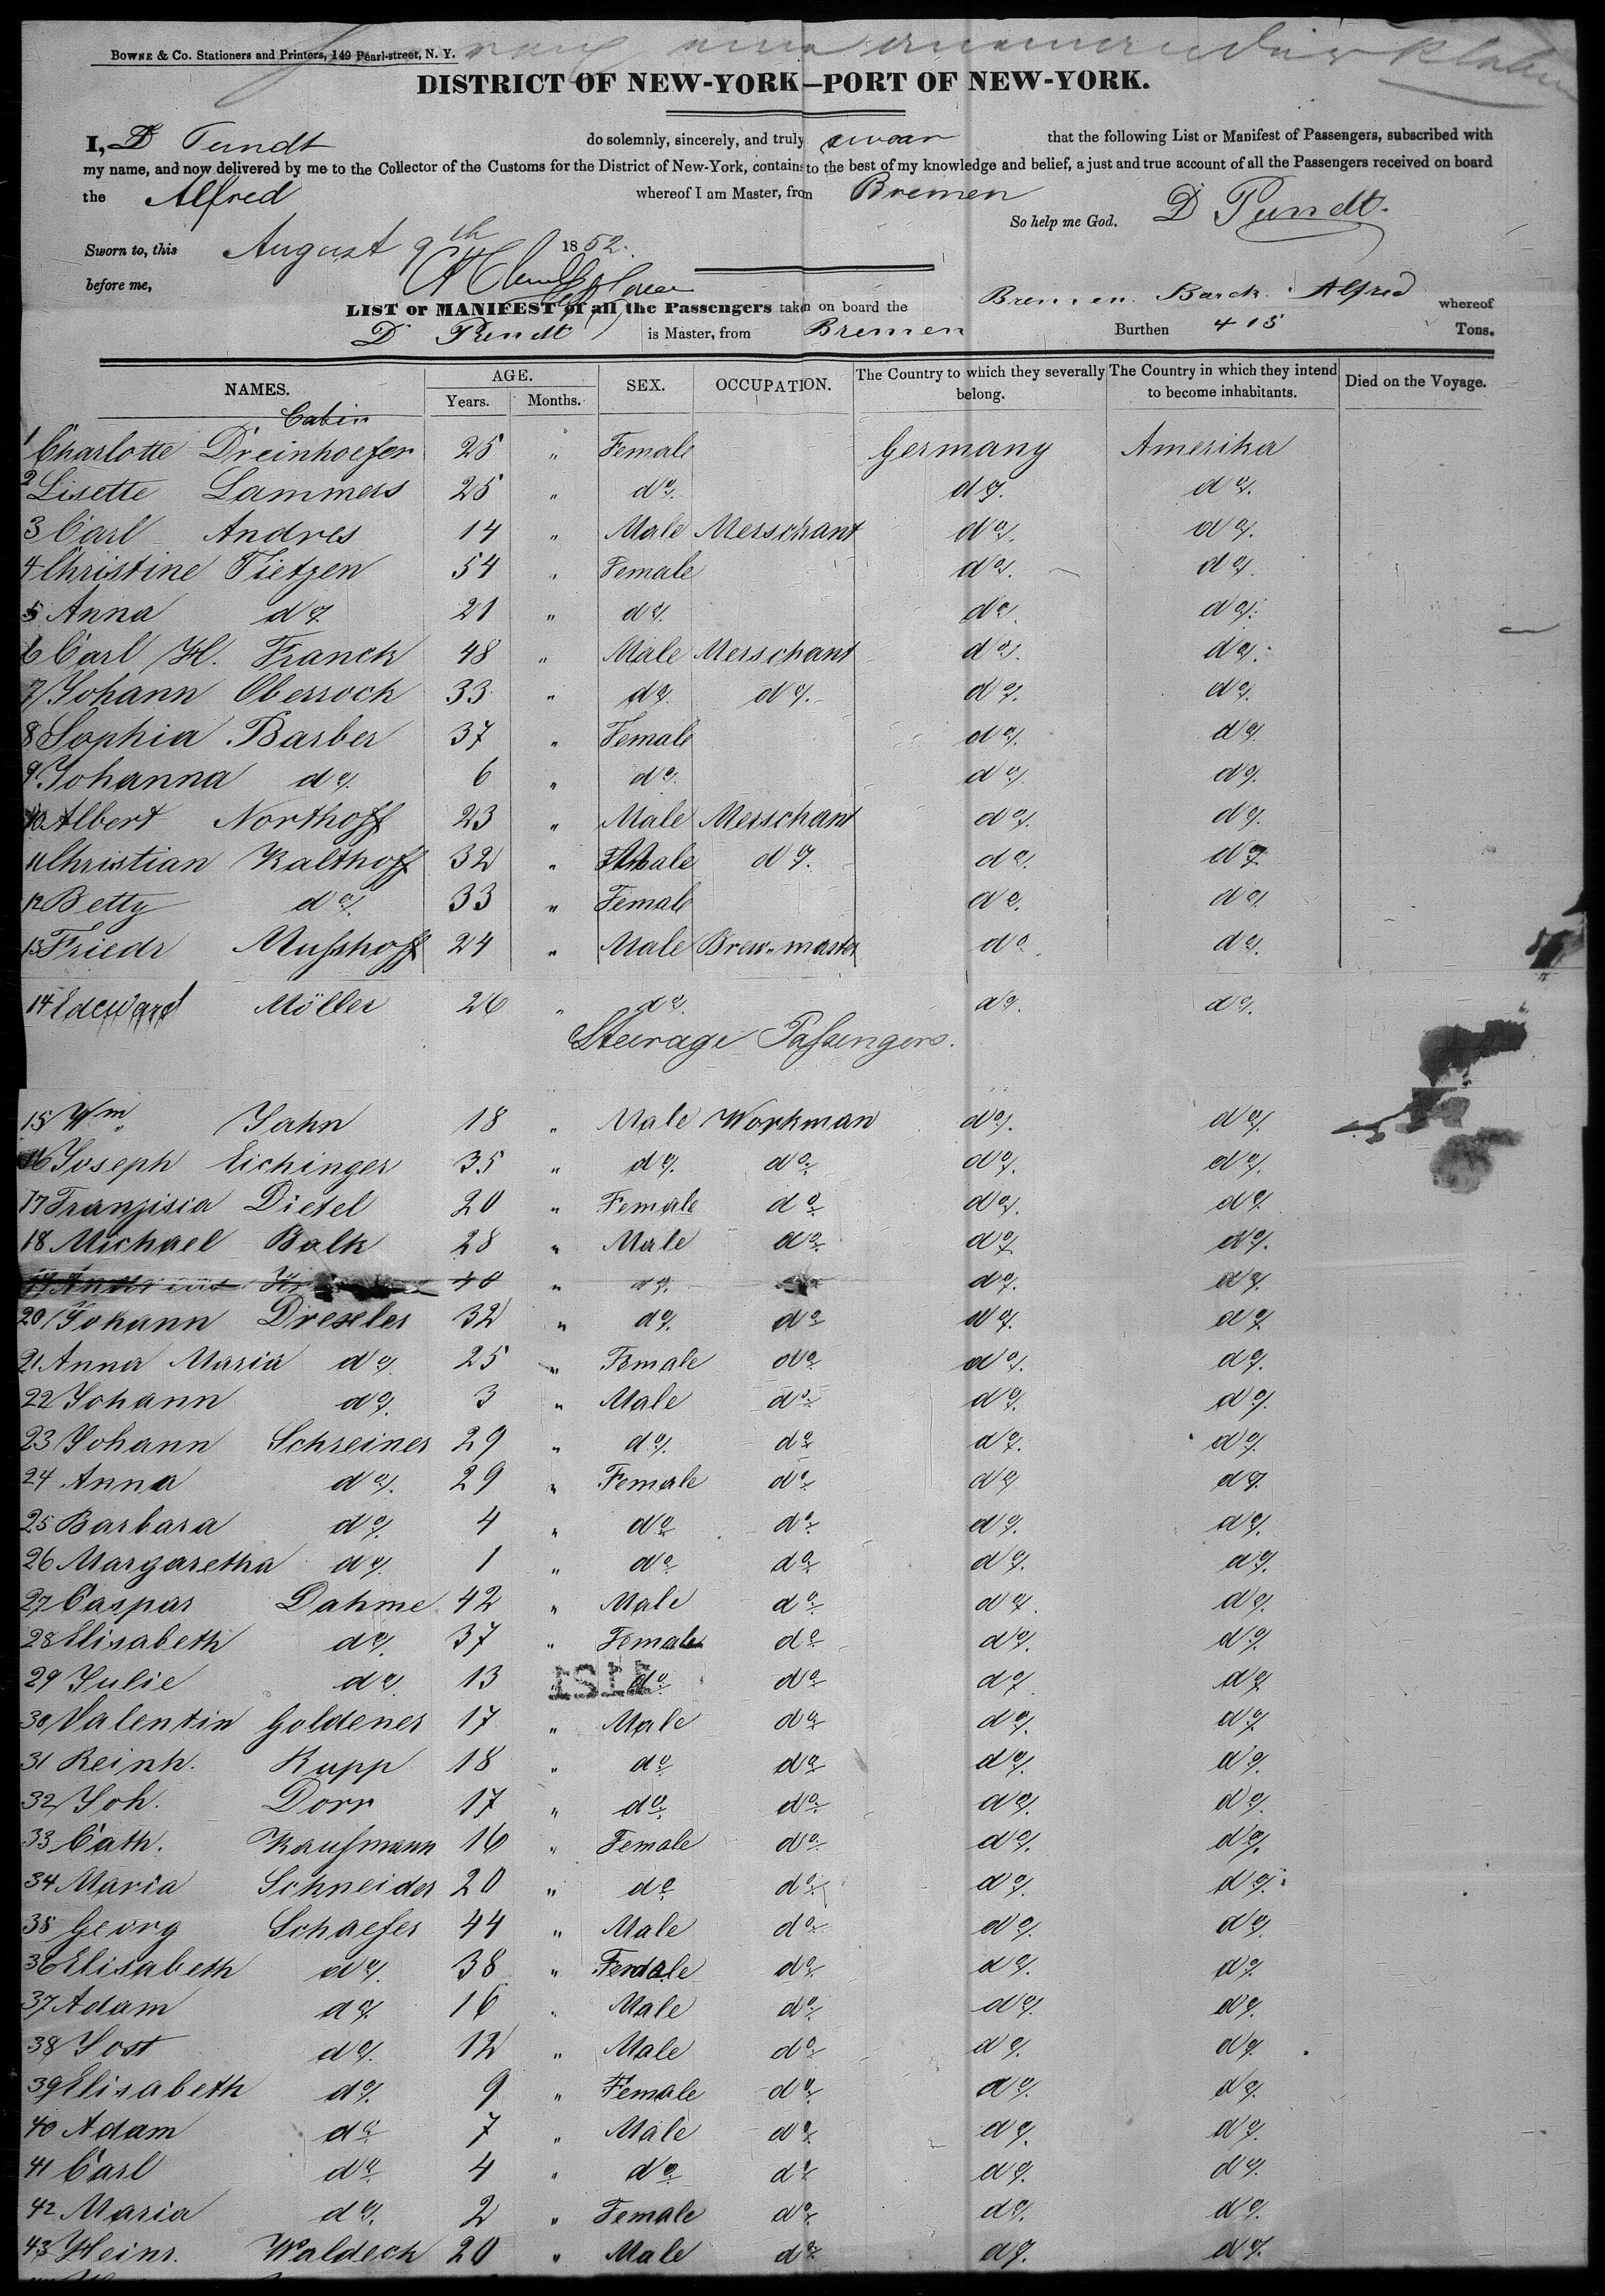 BOWNE & Co. Stationers and Printers, 149 Pearl-street, N. Y.
DISTRICT OF NEW-YORK—PORT OF NEW-YORK.
I, D Pundt do solemnly, sincerely, and truly swear that the following List or Manifest of Passengers, subscribed with
my name, and now delivered by me to the Collector of the Customs for the District of New-York, contains to the best of my knowledge and belief, a just and true account of all the Passengers received on board
the Alfred whereof I am Master, from Bremen
So help me God. D Pundt.
Sworn to, this August 9th 1852.
before me,
LIST or MANIFEST of all the Passengers taken on board the Bremen Barck Alfred whereof
D Pundt is Master, from Bremen Burthen 415 Tons.
NAMES. AGE. Years. Months. SEX. OCCUPATION. The Country to which they severally belong. The Country in which they intend to become inhabitants. Died on the Voyage.
Cabin
1 Charlotte Dreinhoefer 25 " Female Germany Amerika
2 Lisette Lammers 25 " do. do. do.
3 Carl Andres 14 " Male Merschant do. do.
4 Christine Tietzen 54 " Female do. do.
5 Anna do. 21 " do. do. do.
6 Carl H. Franck 48 " Male Merschant do. do.
7 Johann Oberroch 33 " do. do. do. do.
8 Sophia Barber 37 " Female do. do.
9 Johanna do. 6 " do. do. do.
10 Albert Northoff 23 " Male Merschant do. do.
11 Christian Kalthoff 32 " Male do. do. do.
12 Betty do. 33 " Female do. do.
13 Friedr Musshoff 24 " Male Brew-master do. do.
14 Edeward Möller 26 " do. do. do.
Steerage Passengers.
15 Wm. Jahn 18 " Male Workman do. do.
16 Joseph Eichinger 35 " do. do. do. do.
17 Franzisca Dietel 20 " Female do. do. do.
18 Michael Balk 28 " Male do. do. do.
19 40 " do. do. do.
20 Johann Drexler 32 " do. do. do. do.
21 Anna Maria do. 25 " Female do. do. do.
22 Johann do. 3 " Male do. do. do.
23 Johann Schreiner 29 " do. do. do. do.
24 Anna do. 29 " Female do. do. do.
25 Barbara do. 4 " do. do. do. do.
26 Margaretha do. 1 " do. do. do. do.
27 Caspar Dahme 42 " Male do. do. do.
28 Elisabeth do. 37 " Female do. do. do.
29 Julie do. 13 " do. do. do. do.
30 Valentin Goldener 17 " Male do. do. do.
31 Reinh. Rupp 18 " do. do. do. do.
32 Joh. Dorr 17 " do. do. do. do.
33 Cath. Kaufmann 16 " Female do. do. do.
34 Maria Schneider 20 " do. do. do. do.
35 Georg Schaefer 44 " Male do. do. do.
36 Elisabeth do. 38 " Female do. do. do.
37 Adam do. 16 " Male do. do. do.
38 Jost do. 12 " Male do. do. do.
39 Elisabeth do. 9 " Female do. do. do.
40 Adam do. 7 " Male do. do. do.
41 Carl do. 4 " do. do. do. do.
42 Maria do. 2 " Female do. do. do.
43 Heinr. Waldeck 20 " Male do. do. do.